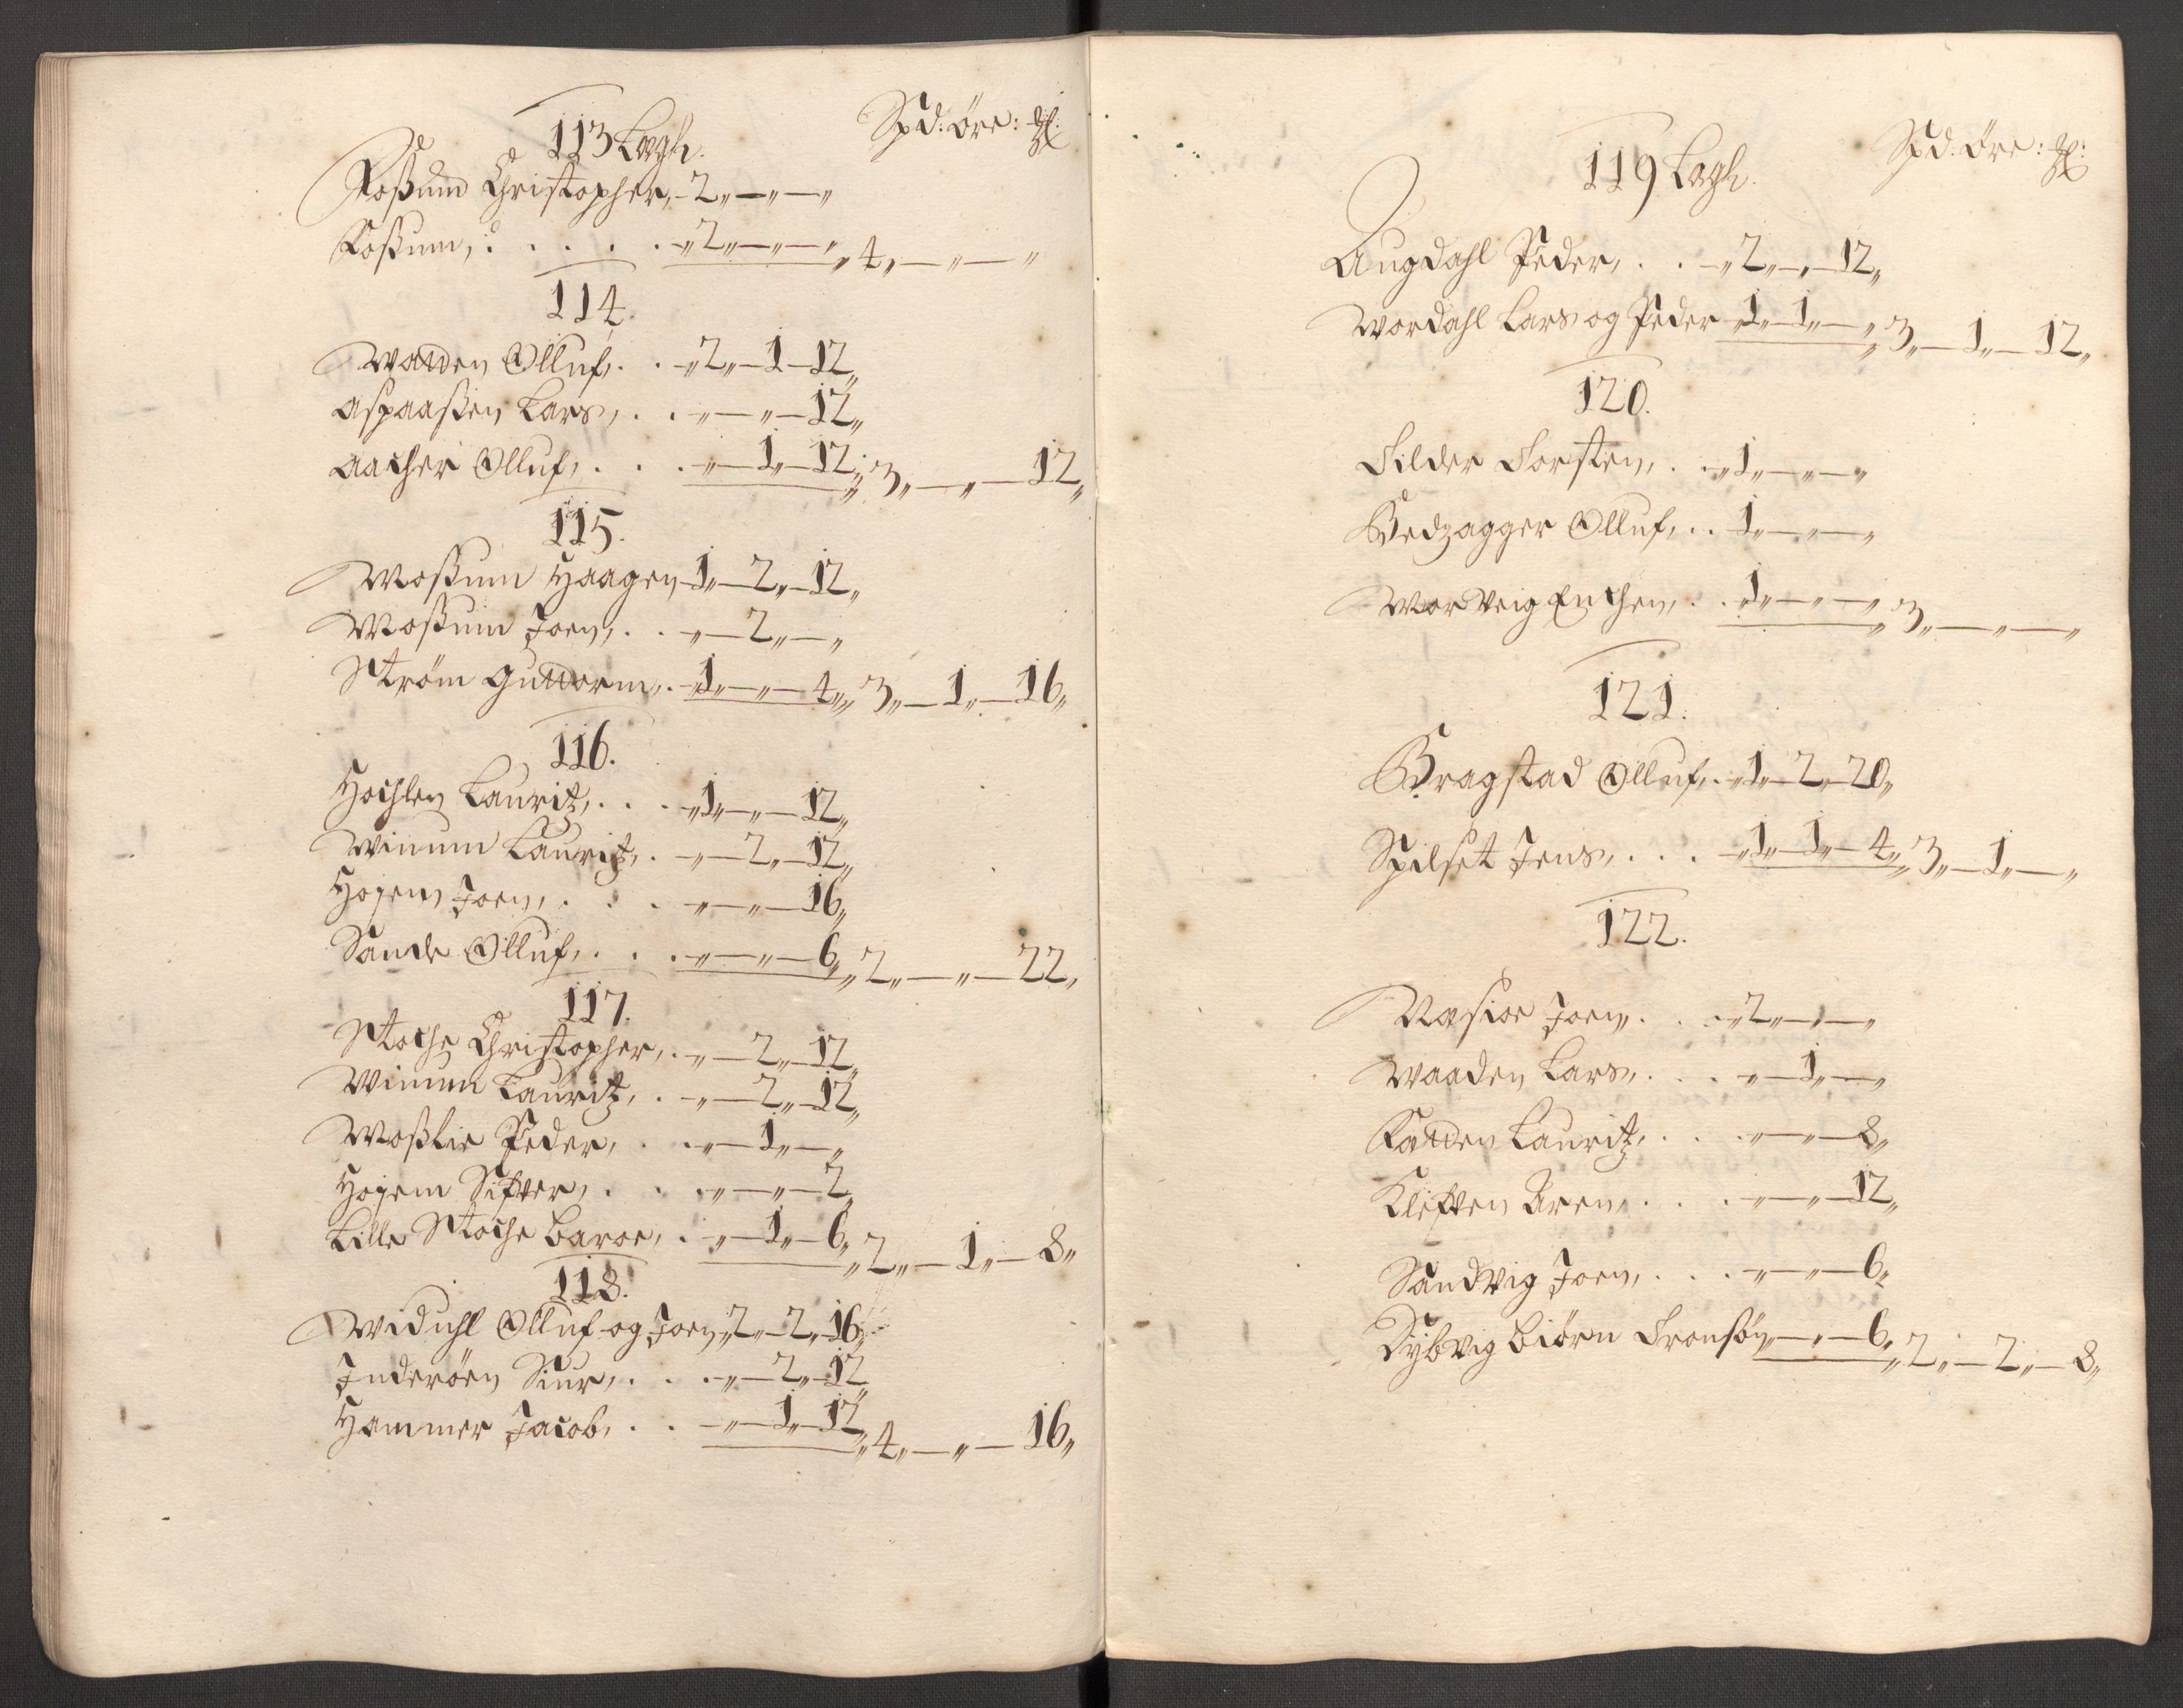 113 Lagh. Spd: öre: 
Foßum Christopher, – 2,, – ,, – ,,
Foßum, : . . . . ,, 2,, – ,, – ,, 4,, – ,, – ,,
114.
Wolden Olluf, . . ,, 2,, – 1 – 12,,
Aspaaßen Lars, . . ,, – ,, – 12,,
Aacher Olluf, . . . ,, – 1,, – 12,, 3,, – ,, – 12,,
115.
Moßum Haagen 1,, – 2,, – 12,,
Moßum Joen, . . ,, – 2,, – ,,
Ström Guttorm, . 1,, – ,, – 4,, 3,, – 1,, – 16,,
116.
Hochlen Lauritz, . . . ,, 1,, – ,, – 12,,
Winum Lauritz, . ,, – 2,, – 12,,
Hojem Joen, . . . ,, – ,, – 16,,
Sande Olluf, . . . ,, – ,, – 6,, 2,, – ,, – 22,,
117.
Stoche Christopher, . ,, – 2,, – 12,,
Winum Lauritz, . ,, – 2,, – 12,,
Moßlie Peder, . . ,, – 1,, – ,,
Hojem Sifver, . . . ,, – ,, – 2,,
Lille Stoche Baroe, . ,, – 1,, – 6,, 2,, – 1,, – 8,,
118.
Widuhl Olluf og Joen ,, 2,, – 2,, 16,,
Inderöen Siur, . . . ,, – 2,, – 12,,
Hammer Jacob, . . – ,, – 1,, – 12,, 4,, – ,, – 16,,
119 Lagh. Spd. öre: 
Augdahl Peder, . . – ,, 2,, – ,, – 12,,
Wordahl Lars og Peder ,, 1,, – 1,, – ,, 3,, – 1,, – 12,,
120.
Silder Torsten, . . ,, 1,, – ,, – ,,
Olluf, . . 1,, – ,, – ,,
Enchen, . . ,, 1,, – ,, – ,, 3,, – ,, – ,,
121.
Bragstad Olluf, . ,, 1,, – 2,, – 20,,
Spilset Jens, . . . – ,, 1,, – 1,, – 4,, 3,, – 1,, – ,,
122.
Nasioe Joen, . . . ,, 2,, – ,, – ,,
Waaden Lars, . . . ,, – 1,, – ,,
Lauritz, . . . ,, – ,, – 8,,
Kleften Aren, . . . ,, – ,, – 12,,
Sandvig Joen, . . . – ,, – ,, – 6,,
Dybvig Biörn Tronsön ,, – ,, – 6,, 2,, – 2,, – 8,,